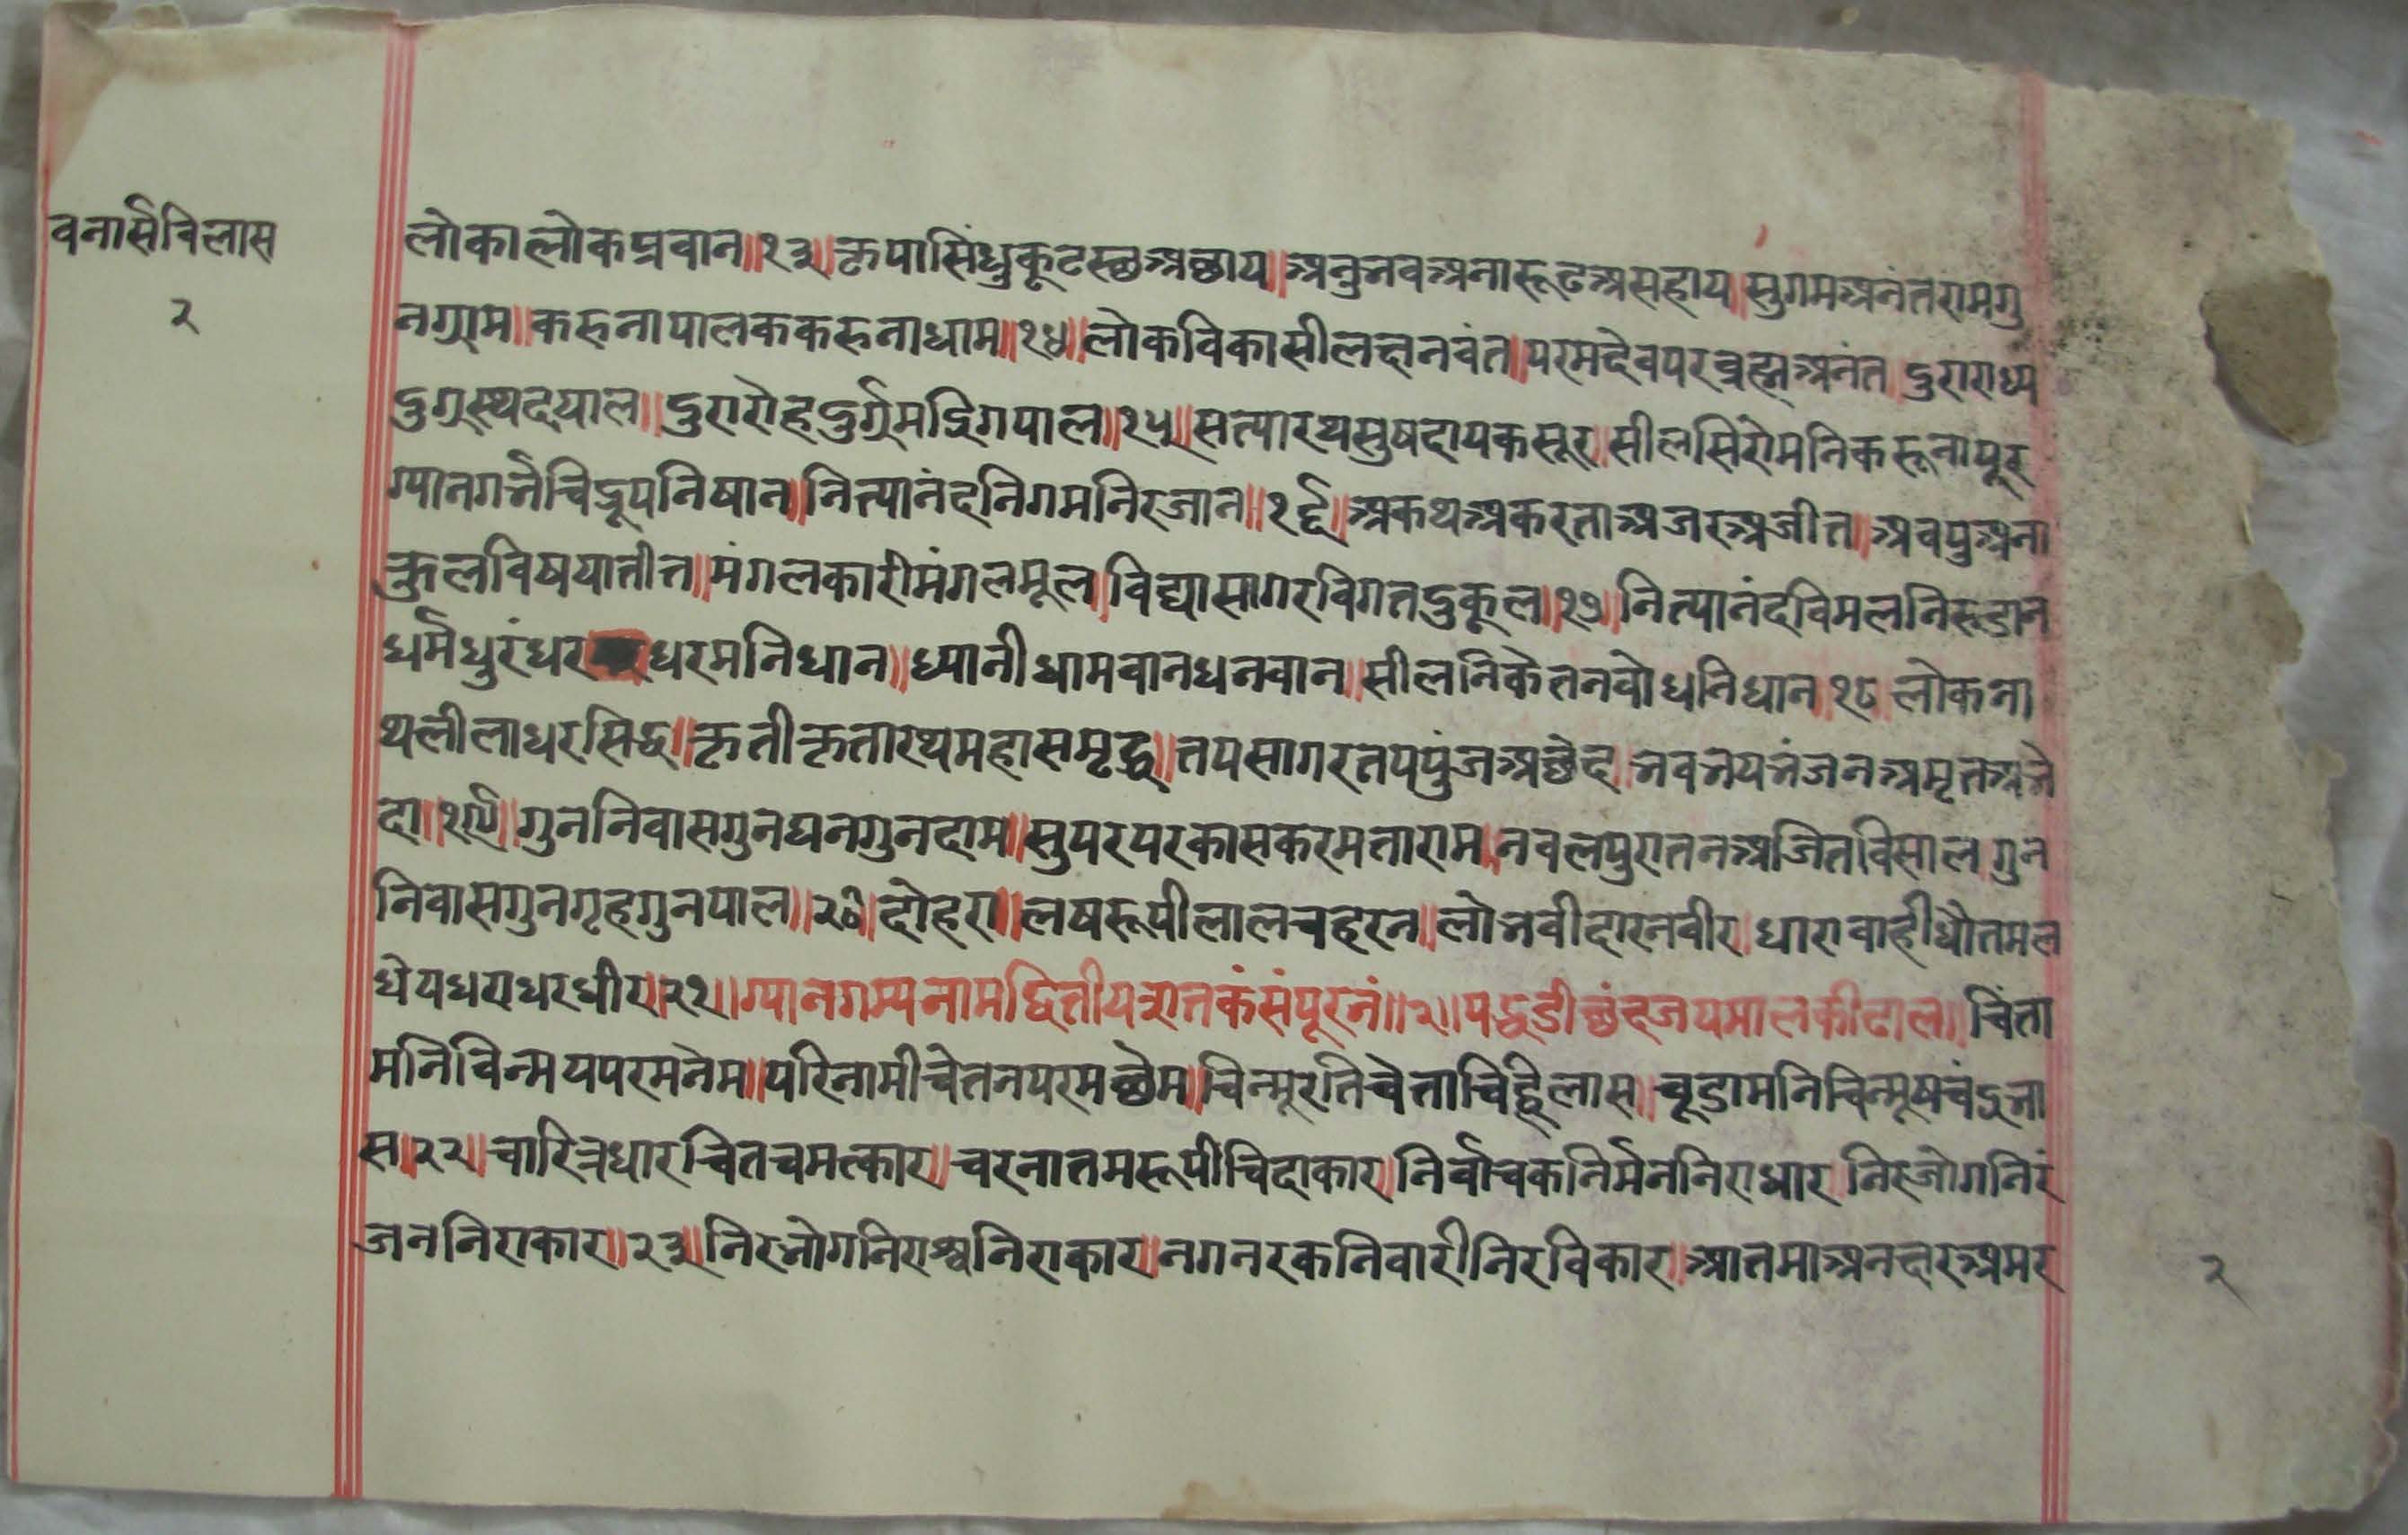 वनार्सविलास
२
लोकालोकप्रवान॥१३॥कृपासिंधुकूटस्छअछाय॥अनुभवअनारूढअसहाय॥सुगमअनंतरामगु
नग्राम॥करुनापालककरुनाधाम॥१४॥लोकविकासीलछनवंत॥परमदेवपरब्रह्मअनंत दुराराध्य
दुग्रस्थदयाल॥दुरारोहदुर्गमद्रिगपाल॥१५॥सत्यारथसुषदायकसूर॥सीलसिरोमनिकरूनापूर
ग्यानगर्भचिद्रूपनिधान॥नित्यानंदनिगमनिरजान॥१६॥अकथअकरताअजरअजीत॥अवपुअना
कुलविषयातीत॥मंगलकारीमंगलमूल॥विद्यासागरविगतदुकूल॥१७॥नित्यानंदविमलनिरूडान
धर्मधुरंधर धरमनिधान॥ध्यानीधामवानधनवान॥सीलनिकेतनवोधनिधान॥१८॥लोकना
थलीलाधरसिद्ध॥कृतीकृतारथमहासमृद्ध॥तपसागरतपपुंजअछेद॥भवभयभंजनअमृतअभे
दा॥१९॥गुननिवासगुनघनगुनदाम॥सुपरपरकासकरमताराम॥नवलपुरातनअजितविसाल॥गुन
निवासगुनगृहगुनपाल॥२०॥दोहरा॥लषरूपीलालचहरन॥लोभवीदारनवीर॥धारावाहीधौतमल
धेयधराधरधीर॥२१॥ग्यानगम्यनामद्वितीयशतकंसंपूरनं॥२॥पद्धडीछंदजयमालकीढाल॥चिंता
मनिचिन्मयपरमनेम॥परिनामीचेतनपरमछेम॥चिन्मूरतिचेताचिद्विलास॥चूडामनिचिन्मूषचंद्रभा
स॥२२॥चारित्रधारचितचमत्कार॥चरनातमरूपीचिदाकार॥निर्वाचकनिर्ममनिराधार॥निरजोगनिरं
जननिराकार॥२३॥निरभोगनिराश्चवनिराकार॥नगनरकनिवारीनिरविकार॥आतमाअनछरअमर
२